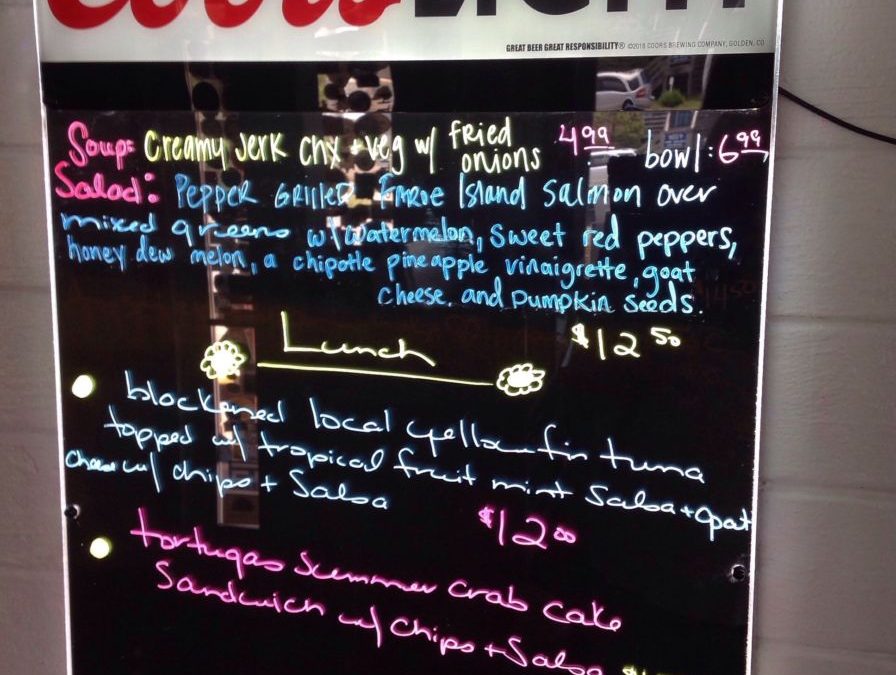 Coors LIGHT
GREAT BEER GREAT RESPONSIBILITY® ©2018 COORS BREWING COMPANY, GOLDEN, CO
Soup: Creamy Jerk chx + veg w/ fried onions 4.99 bowl: 6.99
Salad: PEPPER GRILLED FAROE Island Salmon over
mixed greens w/ watermelon, sweet red peppers,
honey dew melon, a chipotle pineapple vinaigrette, goat
cheese, and pumpkin seeds.
$12.50
Lunch
blackened local yellowfin tuna
topped w/ tropical fruit mint salsa + goat
cheese w/ chips + Salsa
$12.00
tortugas summer crab cake
Sandwich w/ chips + Salsa